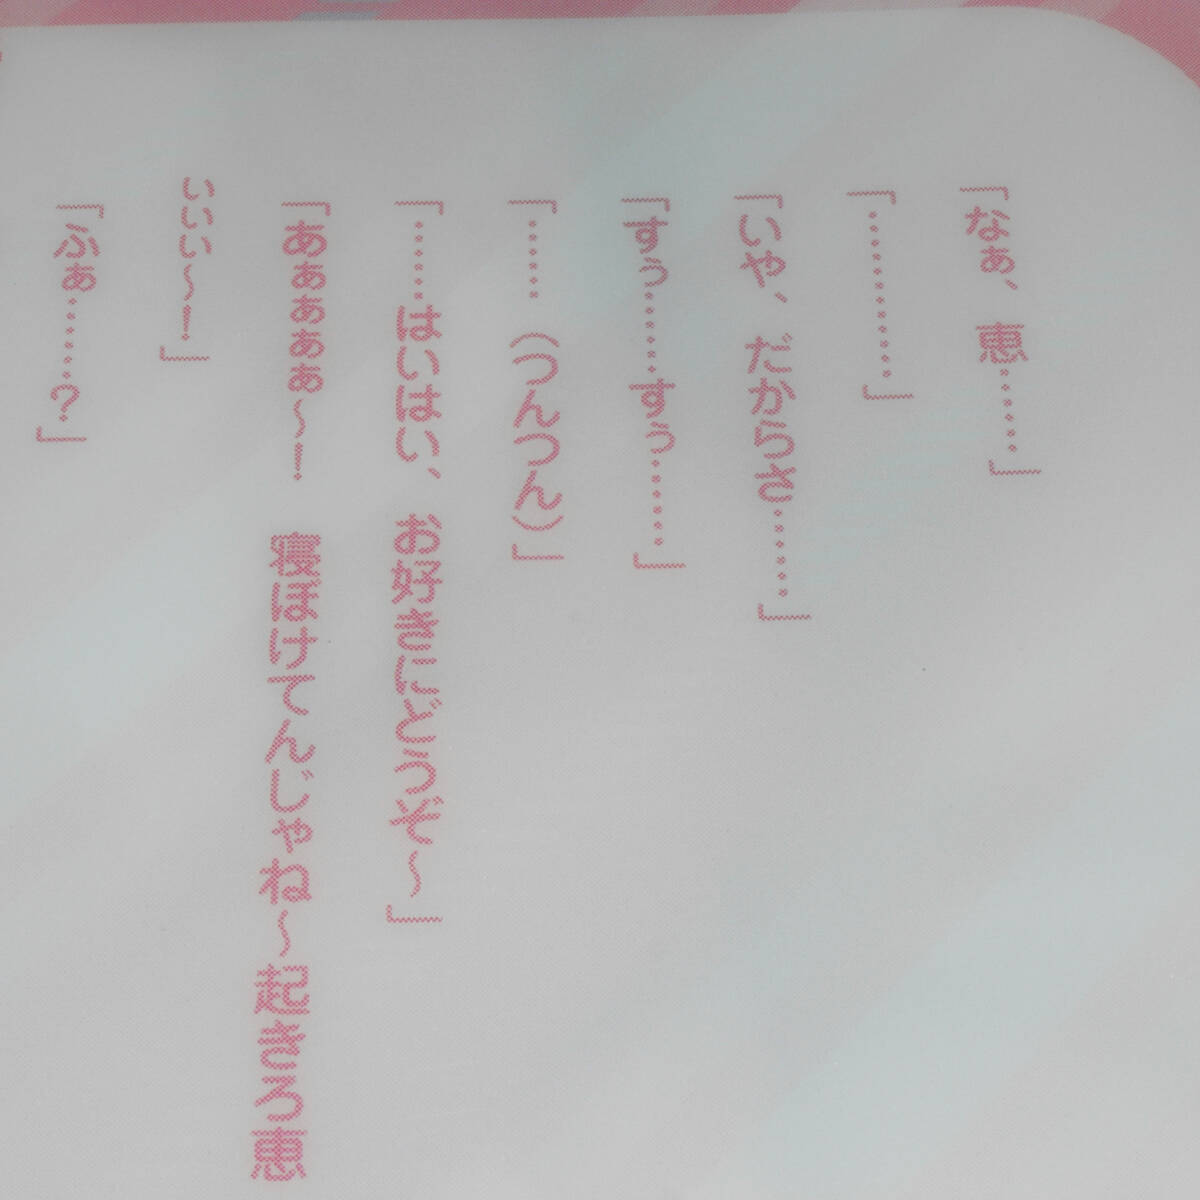 「なぁ、恵……」
「…………」
「いや、だからさ……」
「すぅ……すぅ……」
「……（つんつん）」
「……はいはい、お好きにどうぞ～」
「あぁぁぁぁ～！　寝ぼけてんじゃね～起きろ恵
いいい～！」
「ふぁ……？」